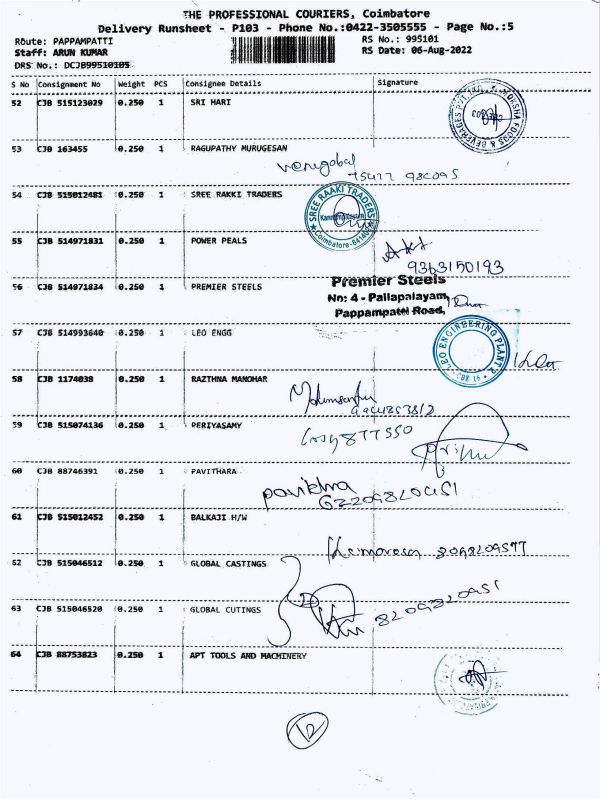 THE PROFESSIONAL COURIERS, Coimbatore
Delivery Runsheet - P103 - Phone No.:0422-3505555 - Page No.:5
Route: PAPPAMPATTI RS No.: 995101
Staff: ARUN KUMAR RS Date: 06-Aug-2022
DRS No.: DCJB99510105
S No Consignment No Weight PCS Consignee Details Signature
52 CJB 515123029 0.250 1 SRI HARI
MOKSHA FOODS & BEVERAGES PVT. LTD.
53 CJB 163455 0.250 1 RAGUPATHY MURUGESAN
venugobal
54 CJB 515012481 0.250 1 SREE RAKKI TRADERS
SREE RAAKI TRADERS
Coimbatore-641402
55 CJB 514971831 0.250 1 POWER PEALS
9363150193
56 CJB 514971834 0.250 1 PREMIER STEELS
Premier Steels
No: 4 - Pallapalayam,
Pappampatti Road,
57 CJB 514993640 0.250 1 LEO ENGG
LEO ENGINEERING PLANT 2
CBE-16
58 CJB 1174038 0.250 1 RAZTHNA MANOHAR
59 CJB 515074136 0.250 1 PERIYASAMY
60 CJB 88746391 0.250 1 PAVITHARA
61 CJB 515012452 0.250 1 BALKAJI H/W
8098209577
62 CJB 515046512 0.250 1 GLOBAL CASTINGS
63 CJB 515046520 0.250 1 GLOBAL CUTINGS
8209820951
64 CJB 88753823 0.250 1 APT TOOLS AND MACHINERY
12